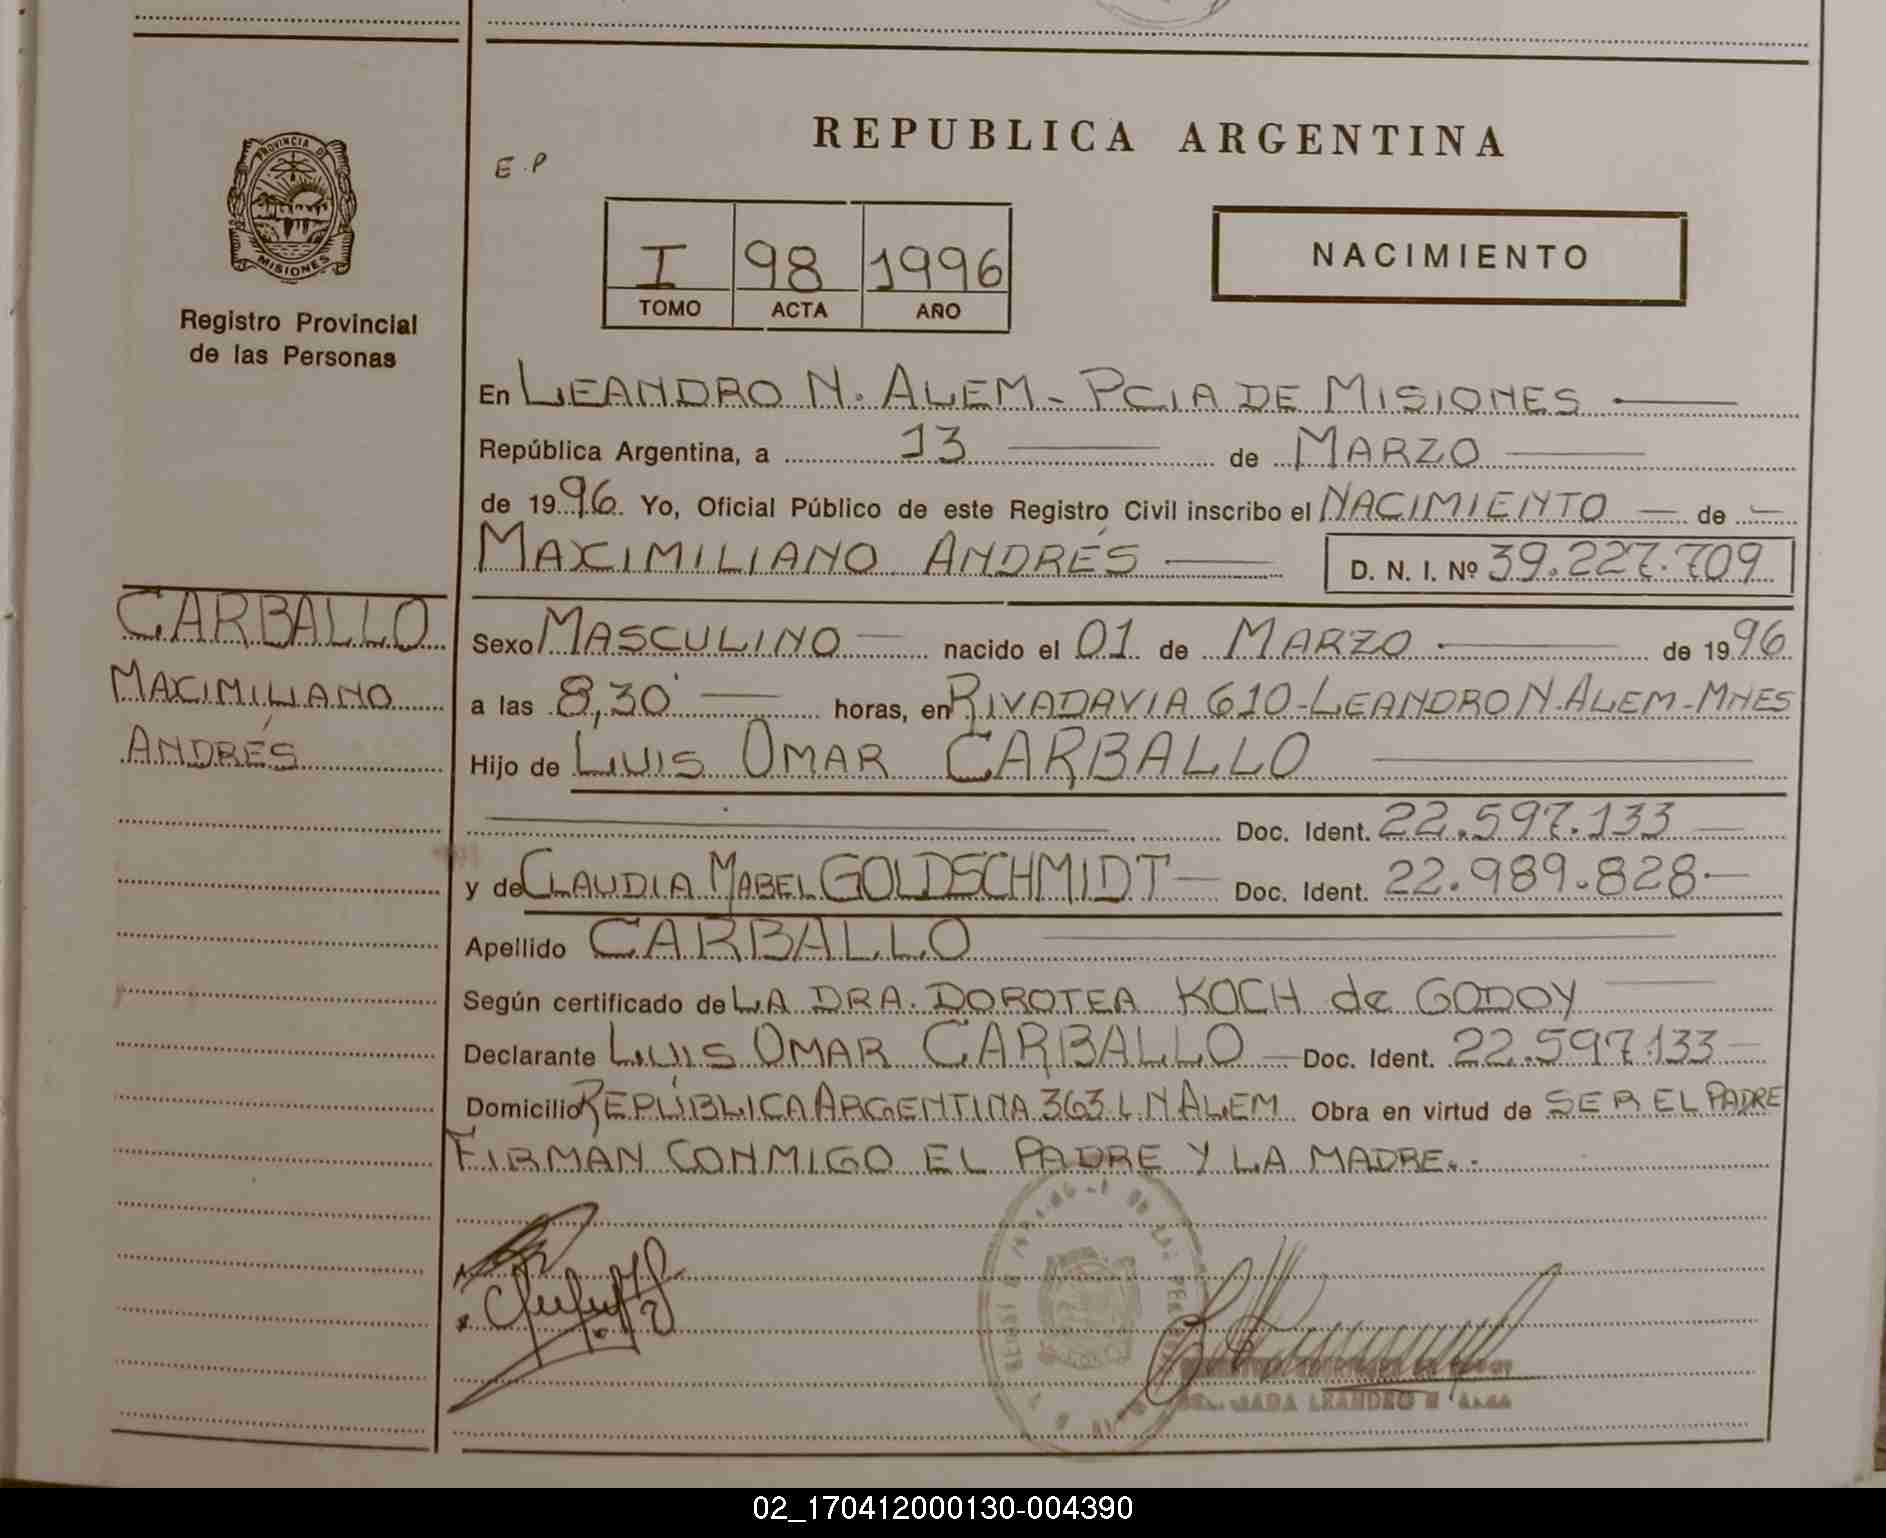 REPUBLICA ARGENTINA
E.P
PROVINCIA DE
MISIONES
Registro Provincial
de las Personas
I 98 1996
TOMO ACTA AÑO
NACIMIENTO
En LEANDRO N. ALEM - PCIA DE MISIONES
República Argentina, a 13 de MARZO
de 1996. Yo, Oficial Público de este Registro Civil inscribo el NACIMIENTO de
MAXIMILIANO ANDRÉS D. N. I. Nº 39.227.709
CARBALLO
MAXIMILIANO
ANDRÉS
Sexo MASCULINO nacido el 01 de MARZO de 1996
a las 8,30 horas, en RIVADAVIA 610-LEANDRO N. ALEM-MNES
Hijo de LUIS OMAR CARBALLO
Doc. Ident. 22.597.133
y de CLAUDIA MABEL GOLDSCHMIDT Doc. Ident. 22.989.828
Apellido CARBALLO
Según certificado de LA DRA. DOROTEA KOCH de GODOY
Declarante LUIS OMAR CARBALLO Doc. Ident. 22.597.133
Domicilio REPÚBLICA ARGENTINA 363 L.N ALEM Obra en virtud de SER EL PADRE
FIRMAN CONMIGO EL PADRE Y LA MADRE.
LEANDRO N
02_170412000130-004390